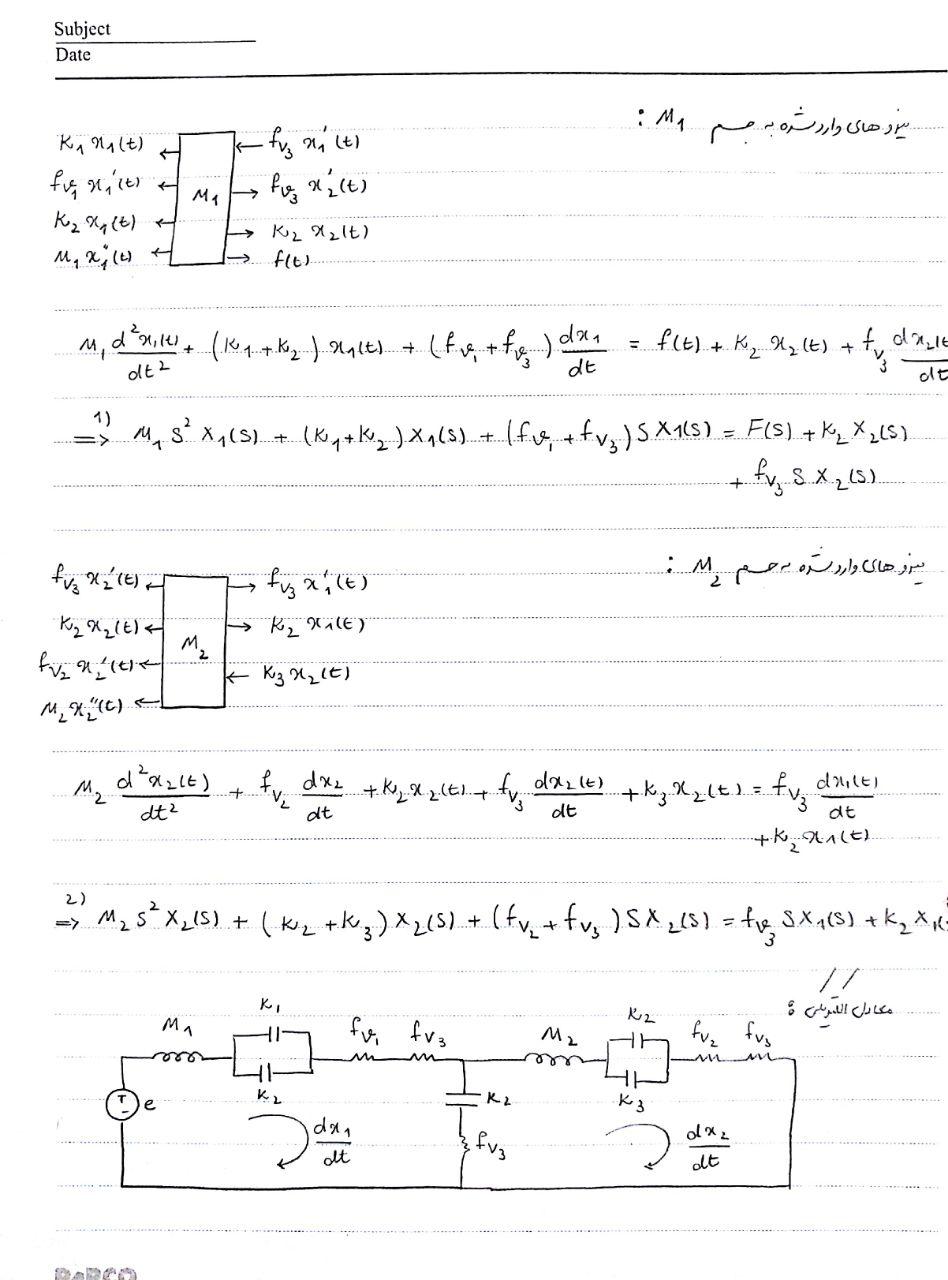 Subject
Date
نیروهای وارد شده به جسم M₁ :
K₁ x₁(t)
fv₁ x₁'(t)
K₂ x₁(t)
M₁ x₁''(t)
M₁
fv₃ x₁'(t)
fv₃ x₂'(t)
K₂ x₂(t)
f(t)
M₁ d²x₁(t)/dt² + (K₁ + K₂) x₁(t) + (fv₁ + fv₃) dx₁/dt = f(t) + K₂ x₂(t) + fv₃ dx₂(t/dt
1) => M₁ S² X₁(S) + (K₁+K₂) X₁(S) + (fv₁ + fv₃) S X₁(S) = F(S) + K₂ X₂(S)
+ fv₃ S X₂(S)
نیروهای وارد شده به جسم M₂ :
fv₃ x₂'(t)
K₂ x₂(t)
fv₂ x₂'(t)
M₂ x₂''(t)
M₂
fv₃ x₁'(t)
K₂ x₁(t)
K₃ x₂(t)
M₂ d²x₂(t)/dt² + fv₂ dx₂/dt + K₂ x₂(t) + fv₃ dx₂(t)/dt + K₃ x₂(t) = fv₃ dx₁(t)/dt
+ K₂ x₁(t)
2) => M₂ S² X₂(S) + (K₂ + K₃) X₂(S) + (fv₂ + fv₃) S X₂(S) = fv₃ S X₁(S) + K₂ X₁(
معادل الکتریکی :
M₁ K₁ K₂ fv₁ fv₃ M₂ K₂ K₃ fv₂ fv₃
e
K₂
fv₃
dx₁/dt
dx₂/dt
PAPCO